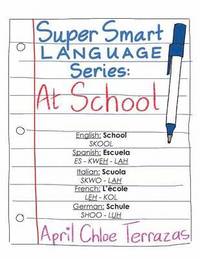 Super Smart
LANGUAGE
Series:
At School
English: School
SKOOL
Spanish: Escuela
ES - KWEH - LAH
Italian: Scuola
SKWO - LAH
French: L'école
LEH - KOL
German: Schule
SHOO - LUH
April Chloe Terrazas